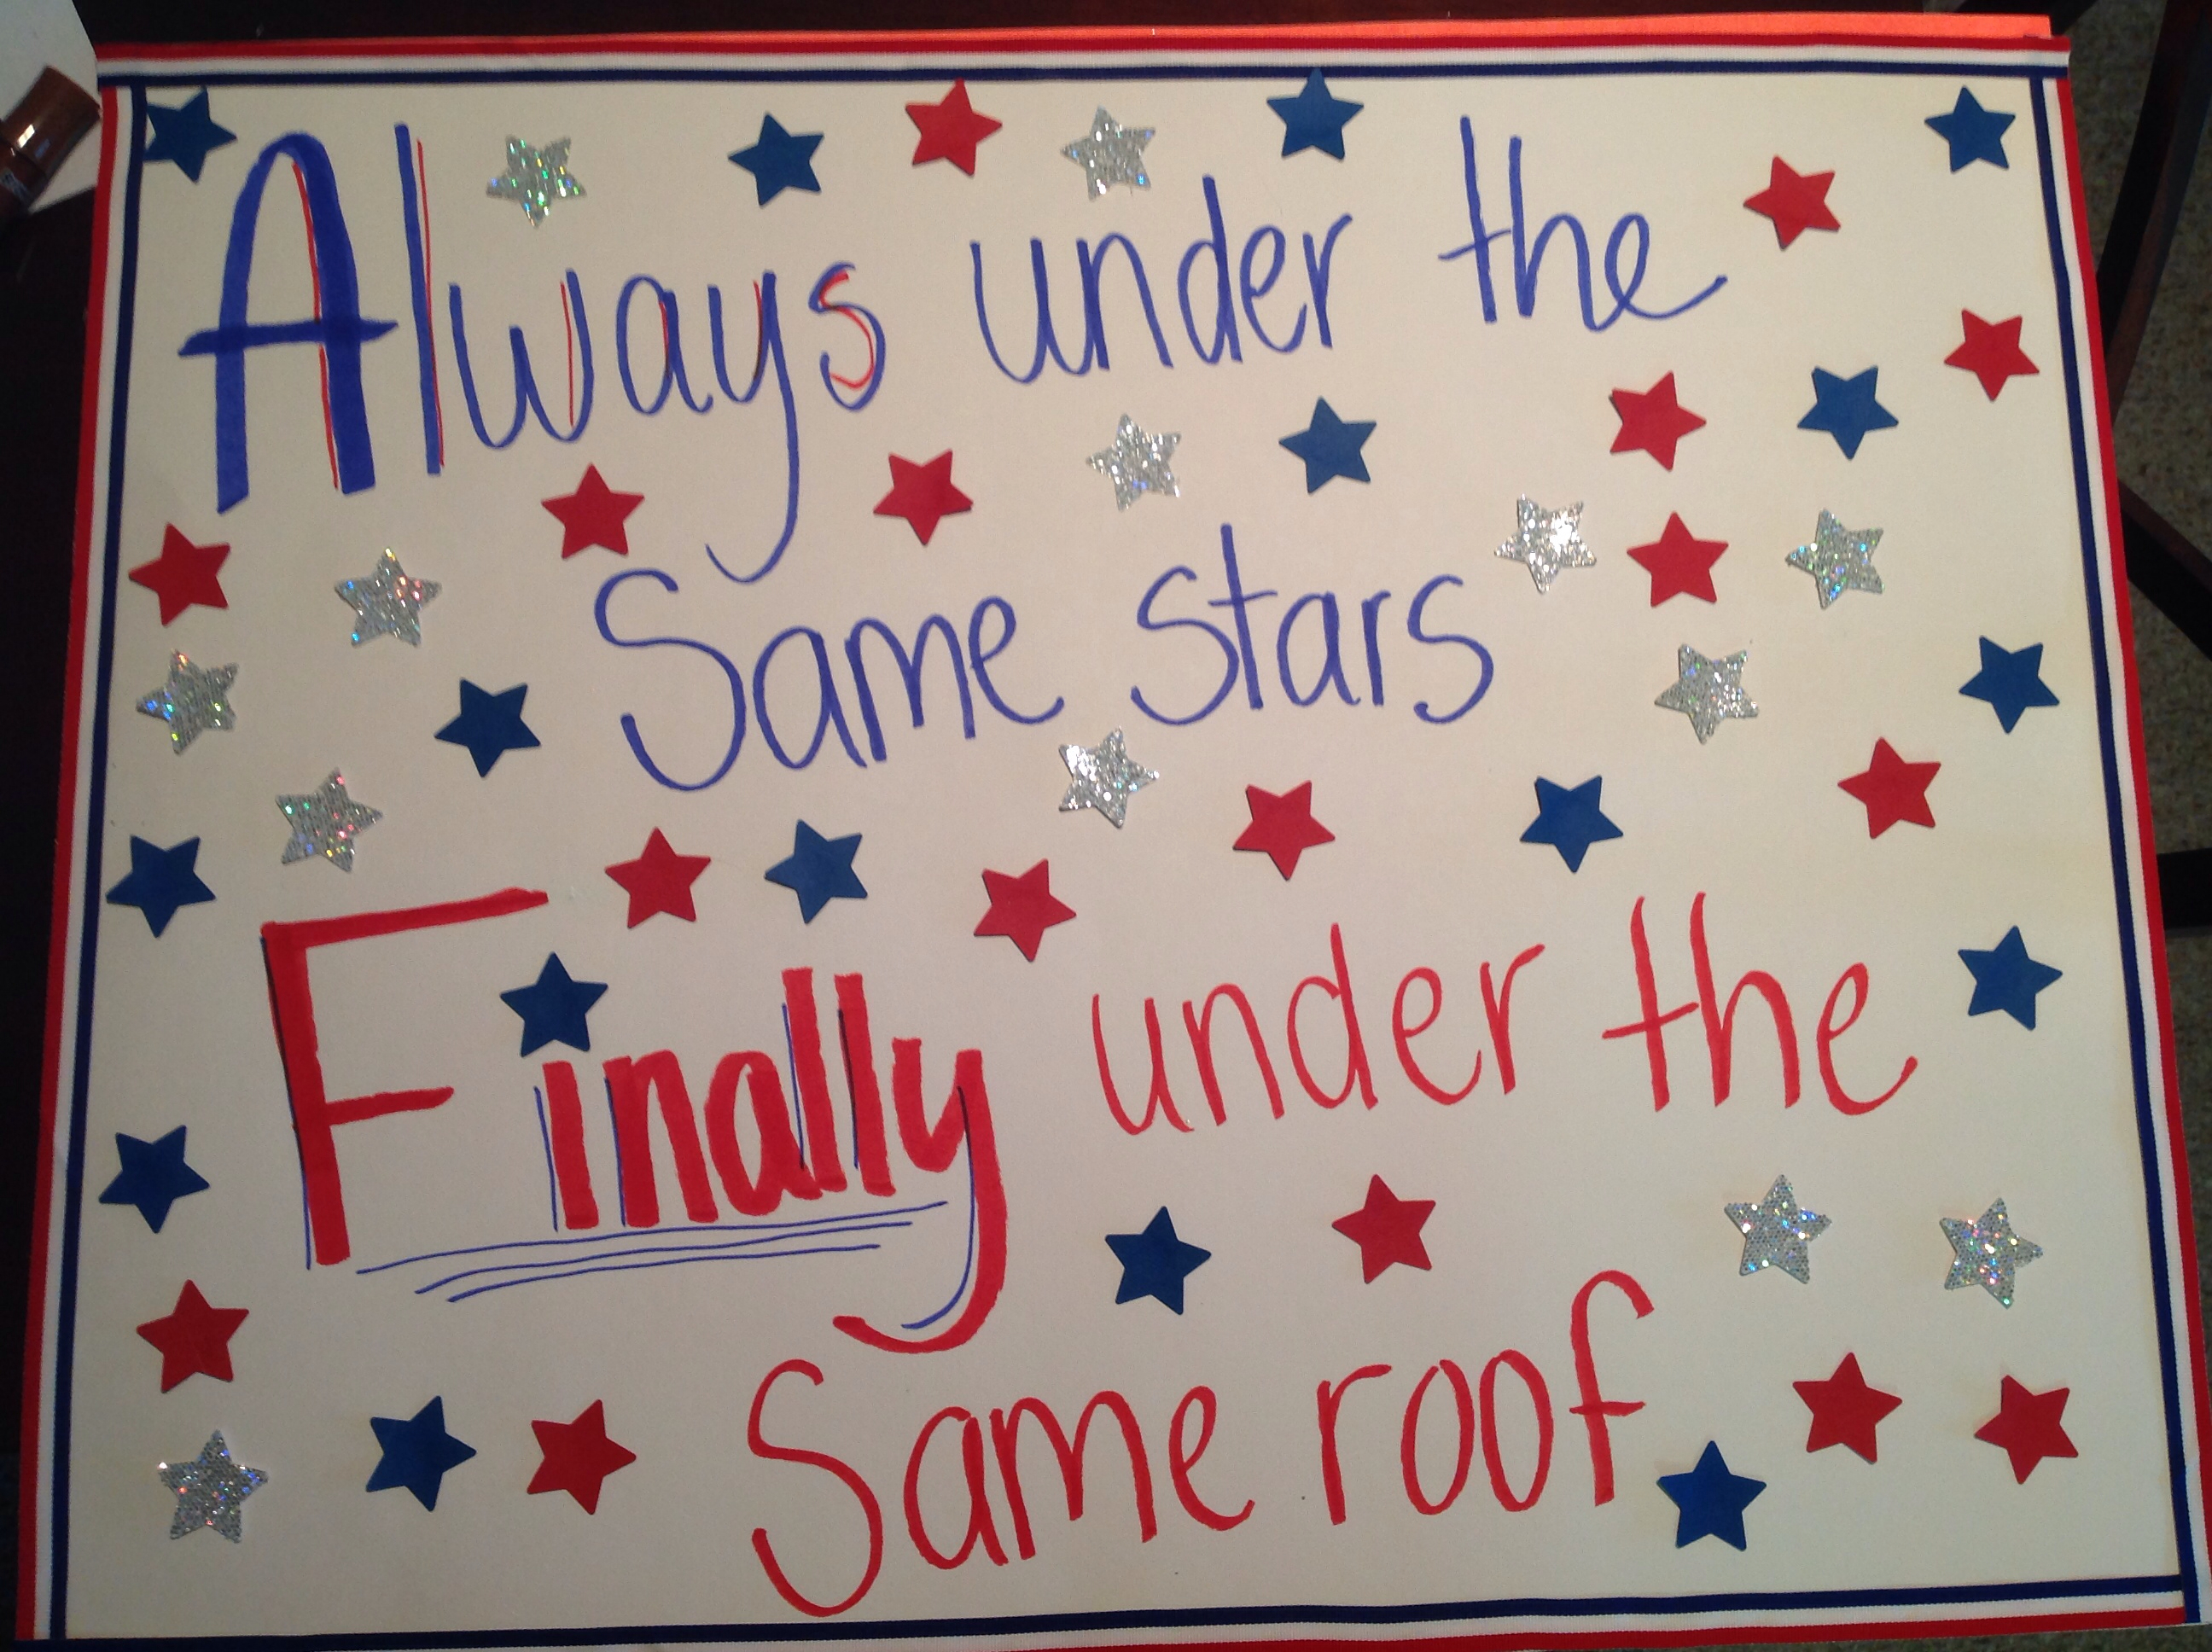 Always under the
Same stars
Finally under the
Same roof